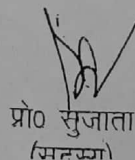 प्रो० सुजाता
(सदस्य)